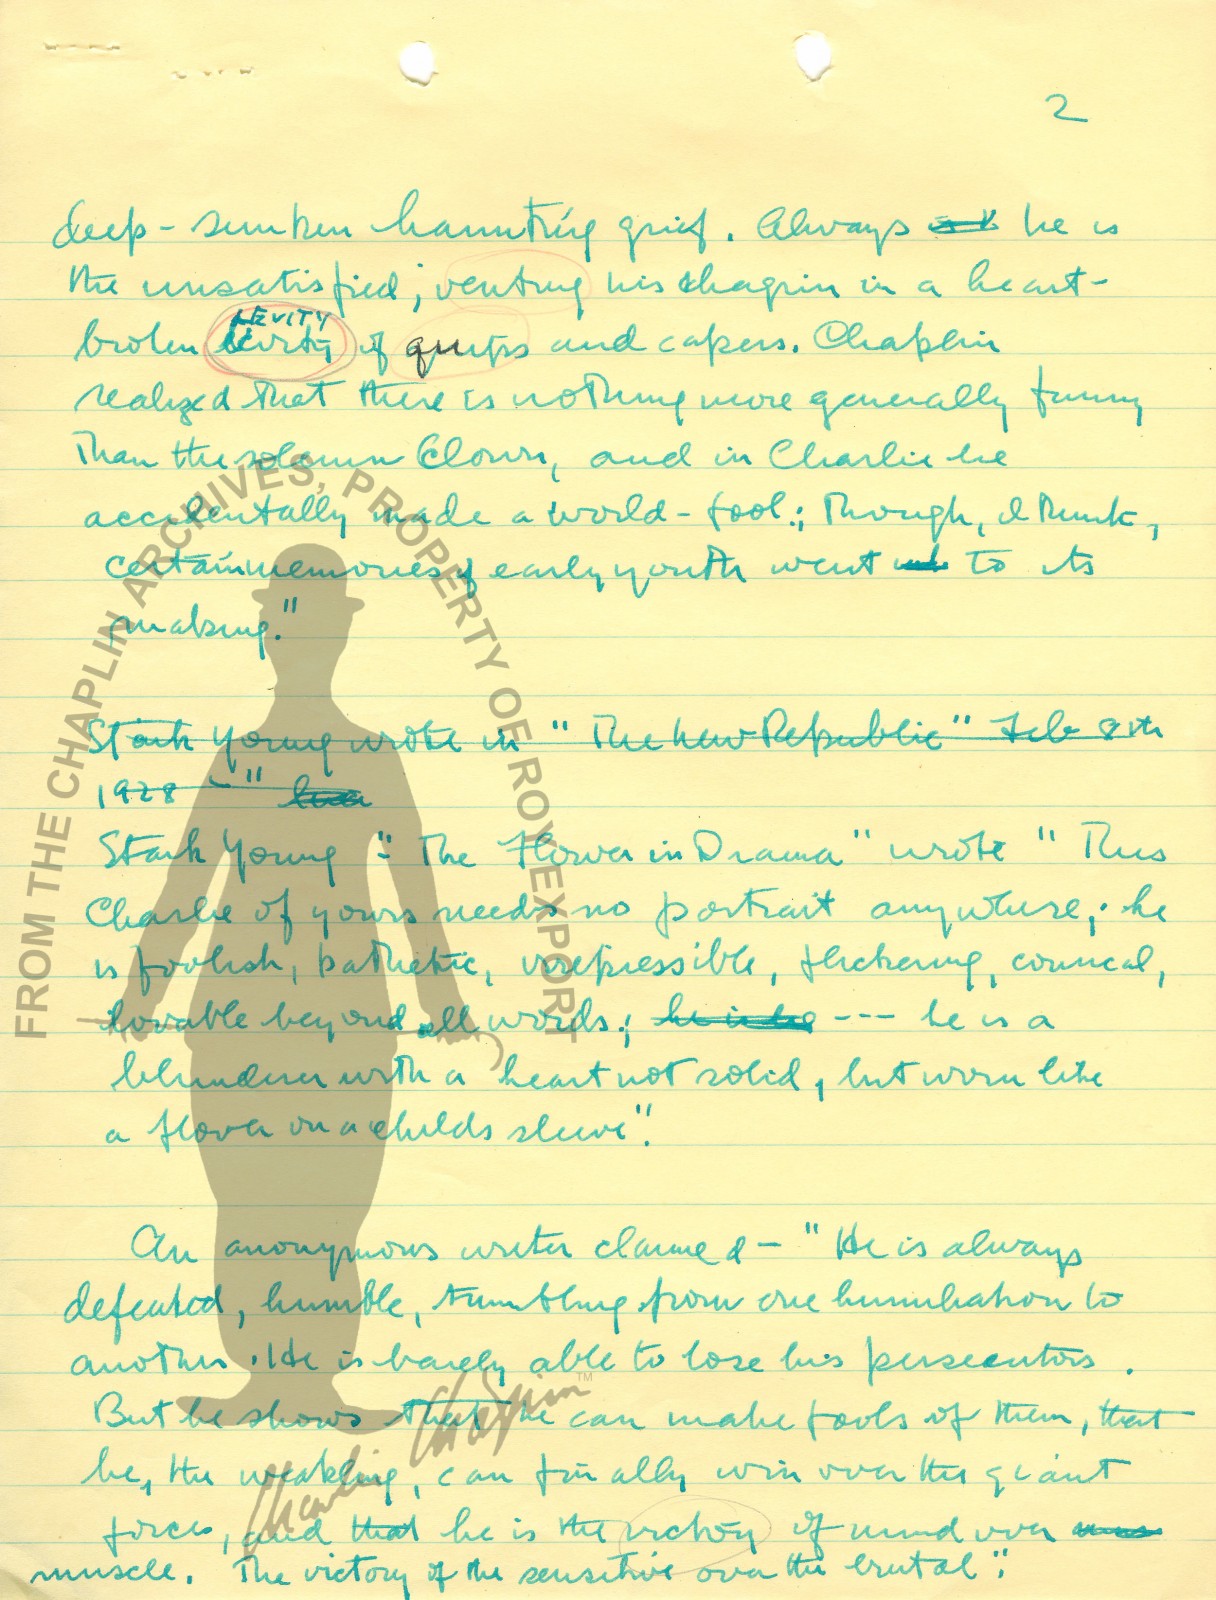 2
deep-sunken haunting grief. Always he is
the unsatisfied; venting his chagrin in a heart-
LEVITY
broken levity of quips and capers. Chaplin
realized that there is nothing more generally funny
than the solemn Clown, and in Charlie he
accidentally made a world-fool.; though, I think,
certain memories of early youth went to its
making."
Stark Young wrote in "The New Republic" Feb 8th
1928 - "
Stark Young "- The Flower in Drama" wrote "This
Charlie of yours needs no portrait anywhere; he
is foolish, pathetic, irrepressible, flickering, comical,
lovable beyond all words; he is --- he is a
blunderer with a heart not solid, but worn like
a flower on a childs sleeve".
An anonymous writer claimed - "He is always
defeated, humble, tumbling from one humiliation to
another. He is barely able to lose his persecutors.
But he shows that he can make fools of them, that
he, the weakling, can finally win over the giant
forces, and that he is the victory of mind over
muscle. The victory of the sensitive over the brutal".
FROM THE CHAPLIN ARCHIVES, PROPERTY OF ROY EXPORT
Charlie Chaplin™